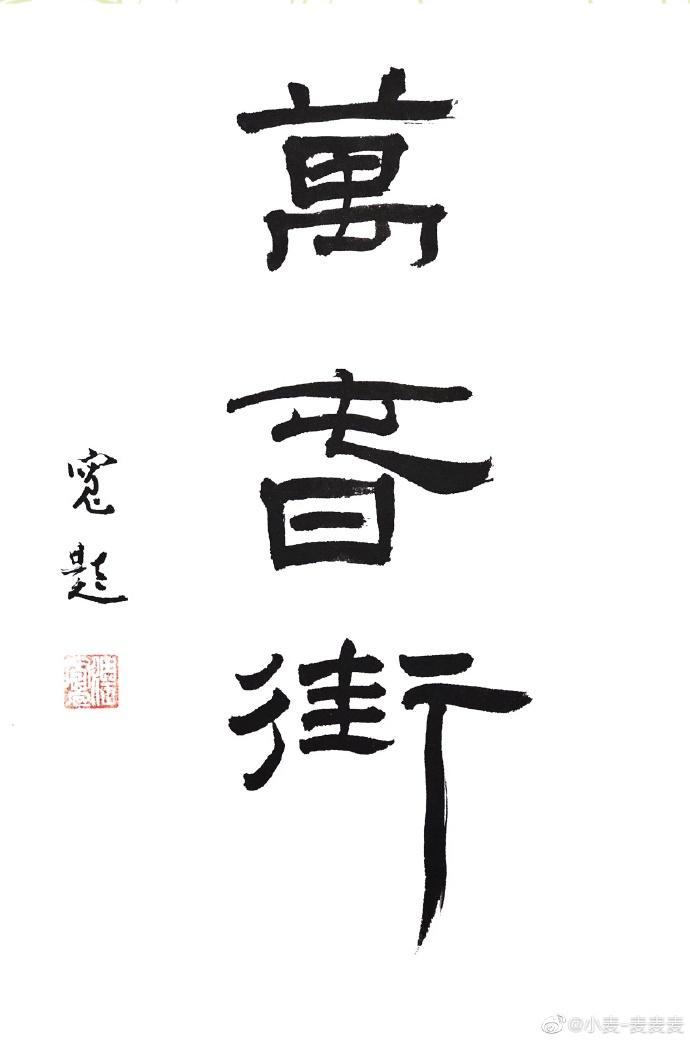 萬春街
寬題
@小麦-麦麦麦